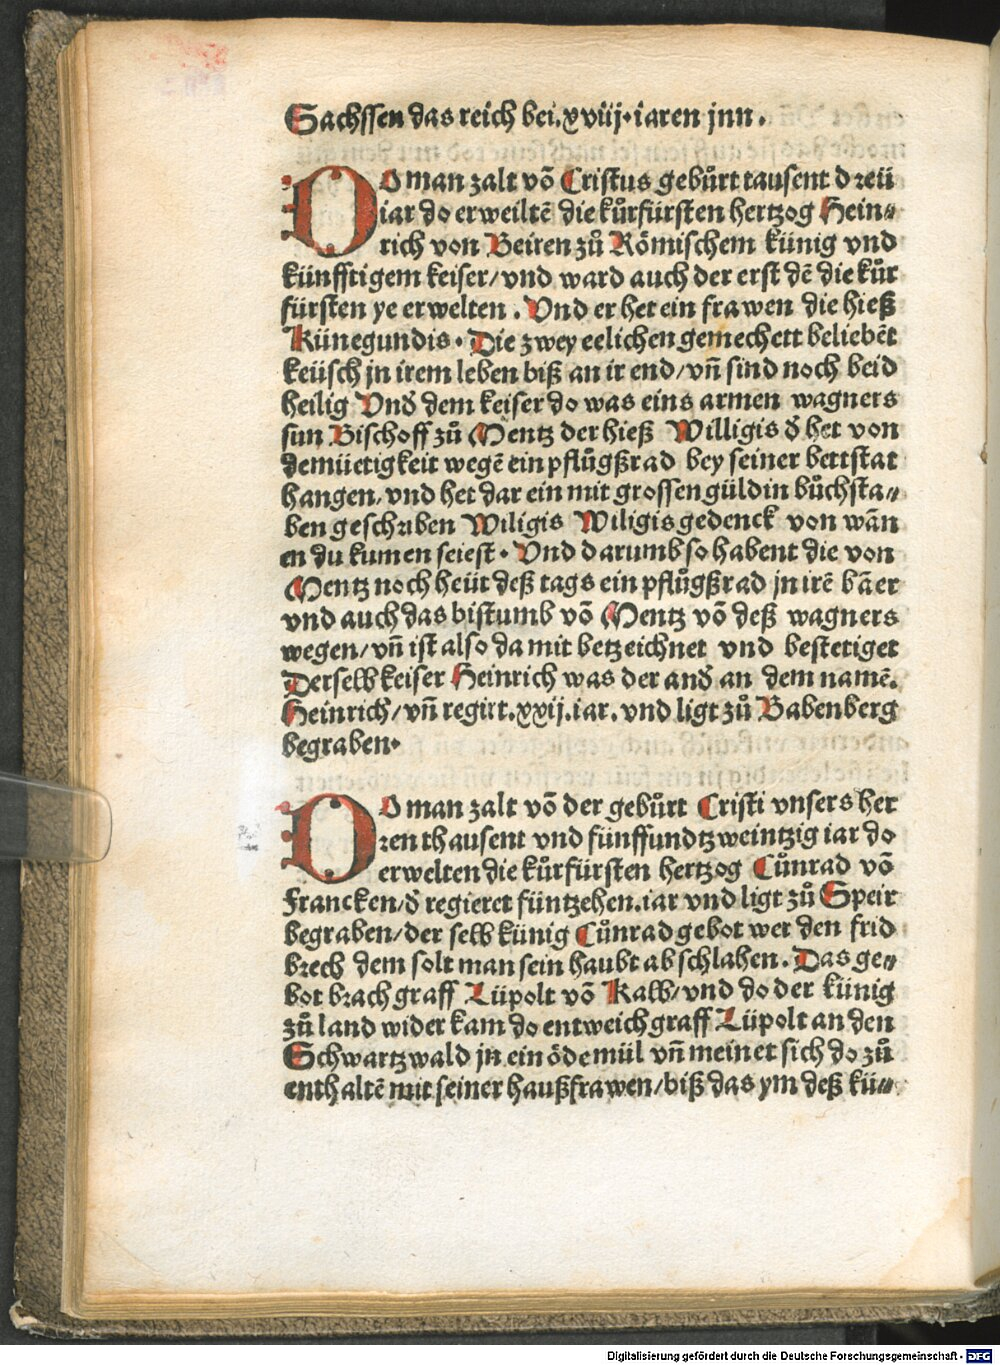 Sachssen das reich bei.xviij.iaren jnn.
DO man zalt võ Cristus gebůrt tausent dreü
iar do erweiltẽ die kůrfürsten hertzog Hein⸗
rich von Beiren zů Römischem künig vnd
künfftigem keiser/vnd ward auch der erst dẽ die kůr
fürsten ye erwelten. Vnd er het ein frawen die hieß
Künegundis. Die zwey eelichen gemechett beliebẽt
keüsch jn irem leben biß an ir end/vñ sind noch beid
heilig Vnd᷑ dem keiser do was eins armen wagners
sun Bischoff zů Mentz der hieß Willigis d᷑ het von
demüetigkeit wegẽ ein pflůgßrad bey seiner bettstat
hangen/vnd het dar ein mit grossen güldin bůchsta⸗
ben geschriben Wiligis Wiligis gedenck von wãn
en du kumen seiest. Vnd darumb so habent die von
Mentz noch heüt deß tags ein pflůgßrad jn irẽ bãer
vnd auch das bistumb võ Mentz võ deß wagners
wegen/vñ ist also da mit betzeichnet vnd bestetiget
Derselb keiser Heinrich was der and᷑ an dem namẽ.
Heinrich/vñ regirt.xxij.iar.vnd ligt zů Babenberg
begraben.
DO man zalt võ der gebůrt Cristi vnsers her
ren thausent vnd fünffundtzweintzig iar do
erwelten die kůrfürsten hertzog Cůnrad võ
Francken/d᷑ regieret füntzehen.iar vnd ligt zů Speir
begraben/der selb künig Cůnrad gebot wer den frid
brech dem solt man sein haubt abschlahen. Das ge⸗
bot brach graff Lüpolt võ Kalb/vnd do der künig
zů land wider kam do entweich graff Lüpolt an den
Schwartzwald jn ein öde mül vñ meinet sich do zů
enthaltẽ mit seiner haußfrawen/biß das ym deß kü⸗
Digitalisierung gefördert durch die Deutsche Forschungsgemeinschaft - DFG